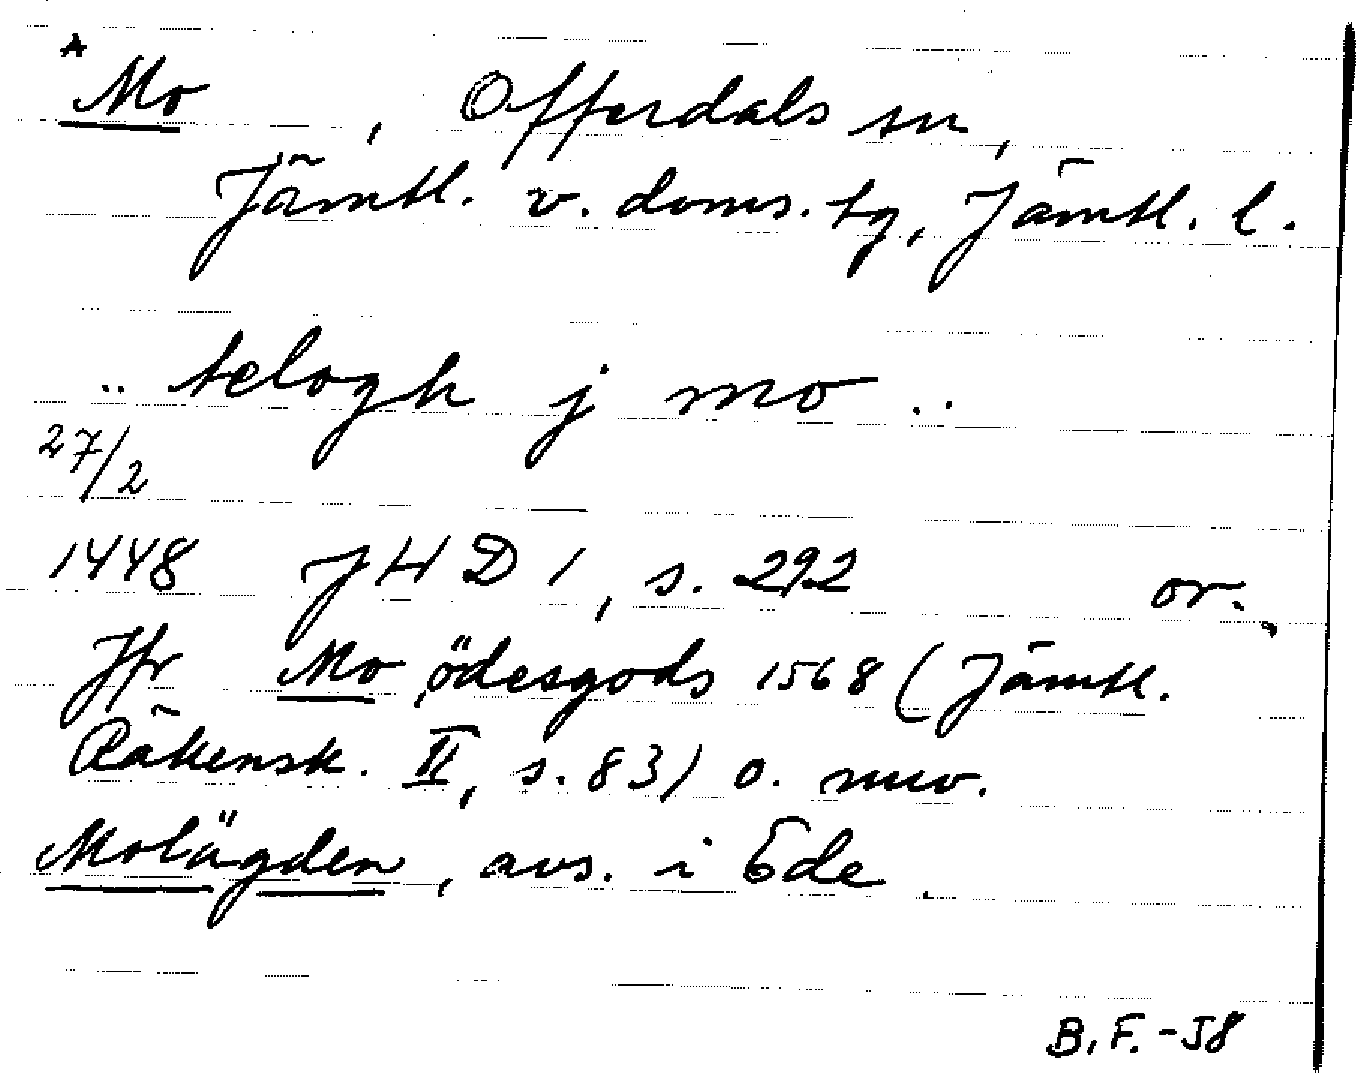 * Mo , Offerdals sn,
Jämtl. v. doms. tg, Jämtl. l.
.. telogh j mo ..
27/2
1448 JHD 1, s. 292 or.
Jfr Mo ödesgods 1568 (Jämtl.
Räkensk. II, s. 83) o. nuv.
Molägden, avs. i Ede.
B.F.-58